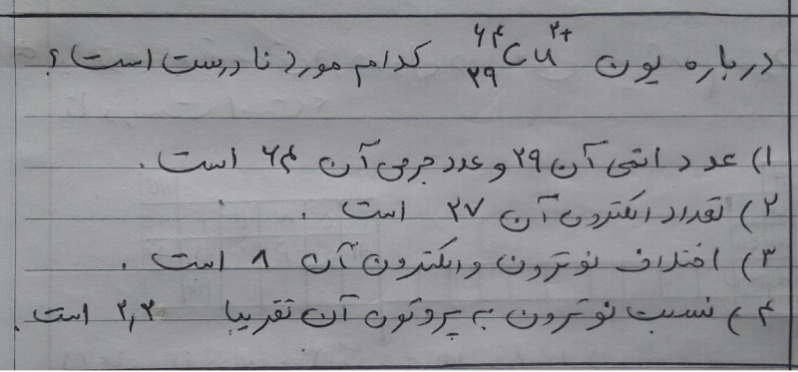 درباره یون ⁶⁴₂₉Cu²⁺ کدام مورد نادرست است؟
۱) عدد اتمی آن ۲۹ و عدد جرمی آن ۶۴ است.
۲) تعداد الکترون آن ۲۷ است.
۳) اختلاف نوترون و الکترون آن ۸ است.
۴) نسبت نوترون به پروتون آن تقریبا ۲,۲ است.